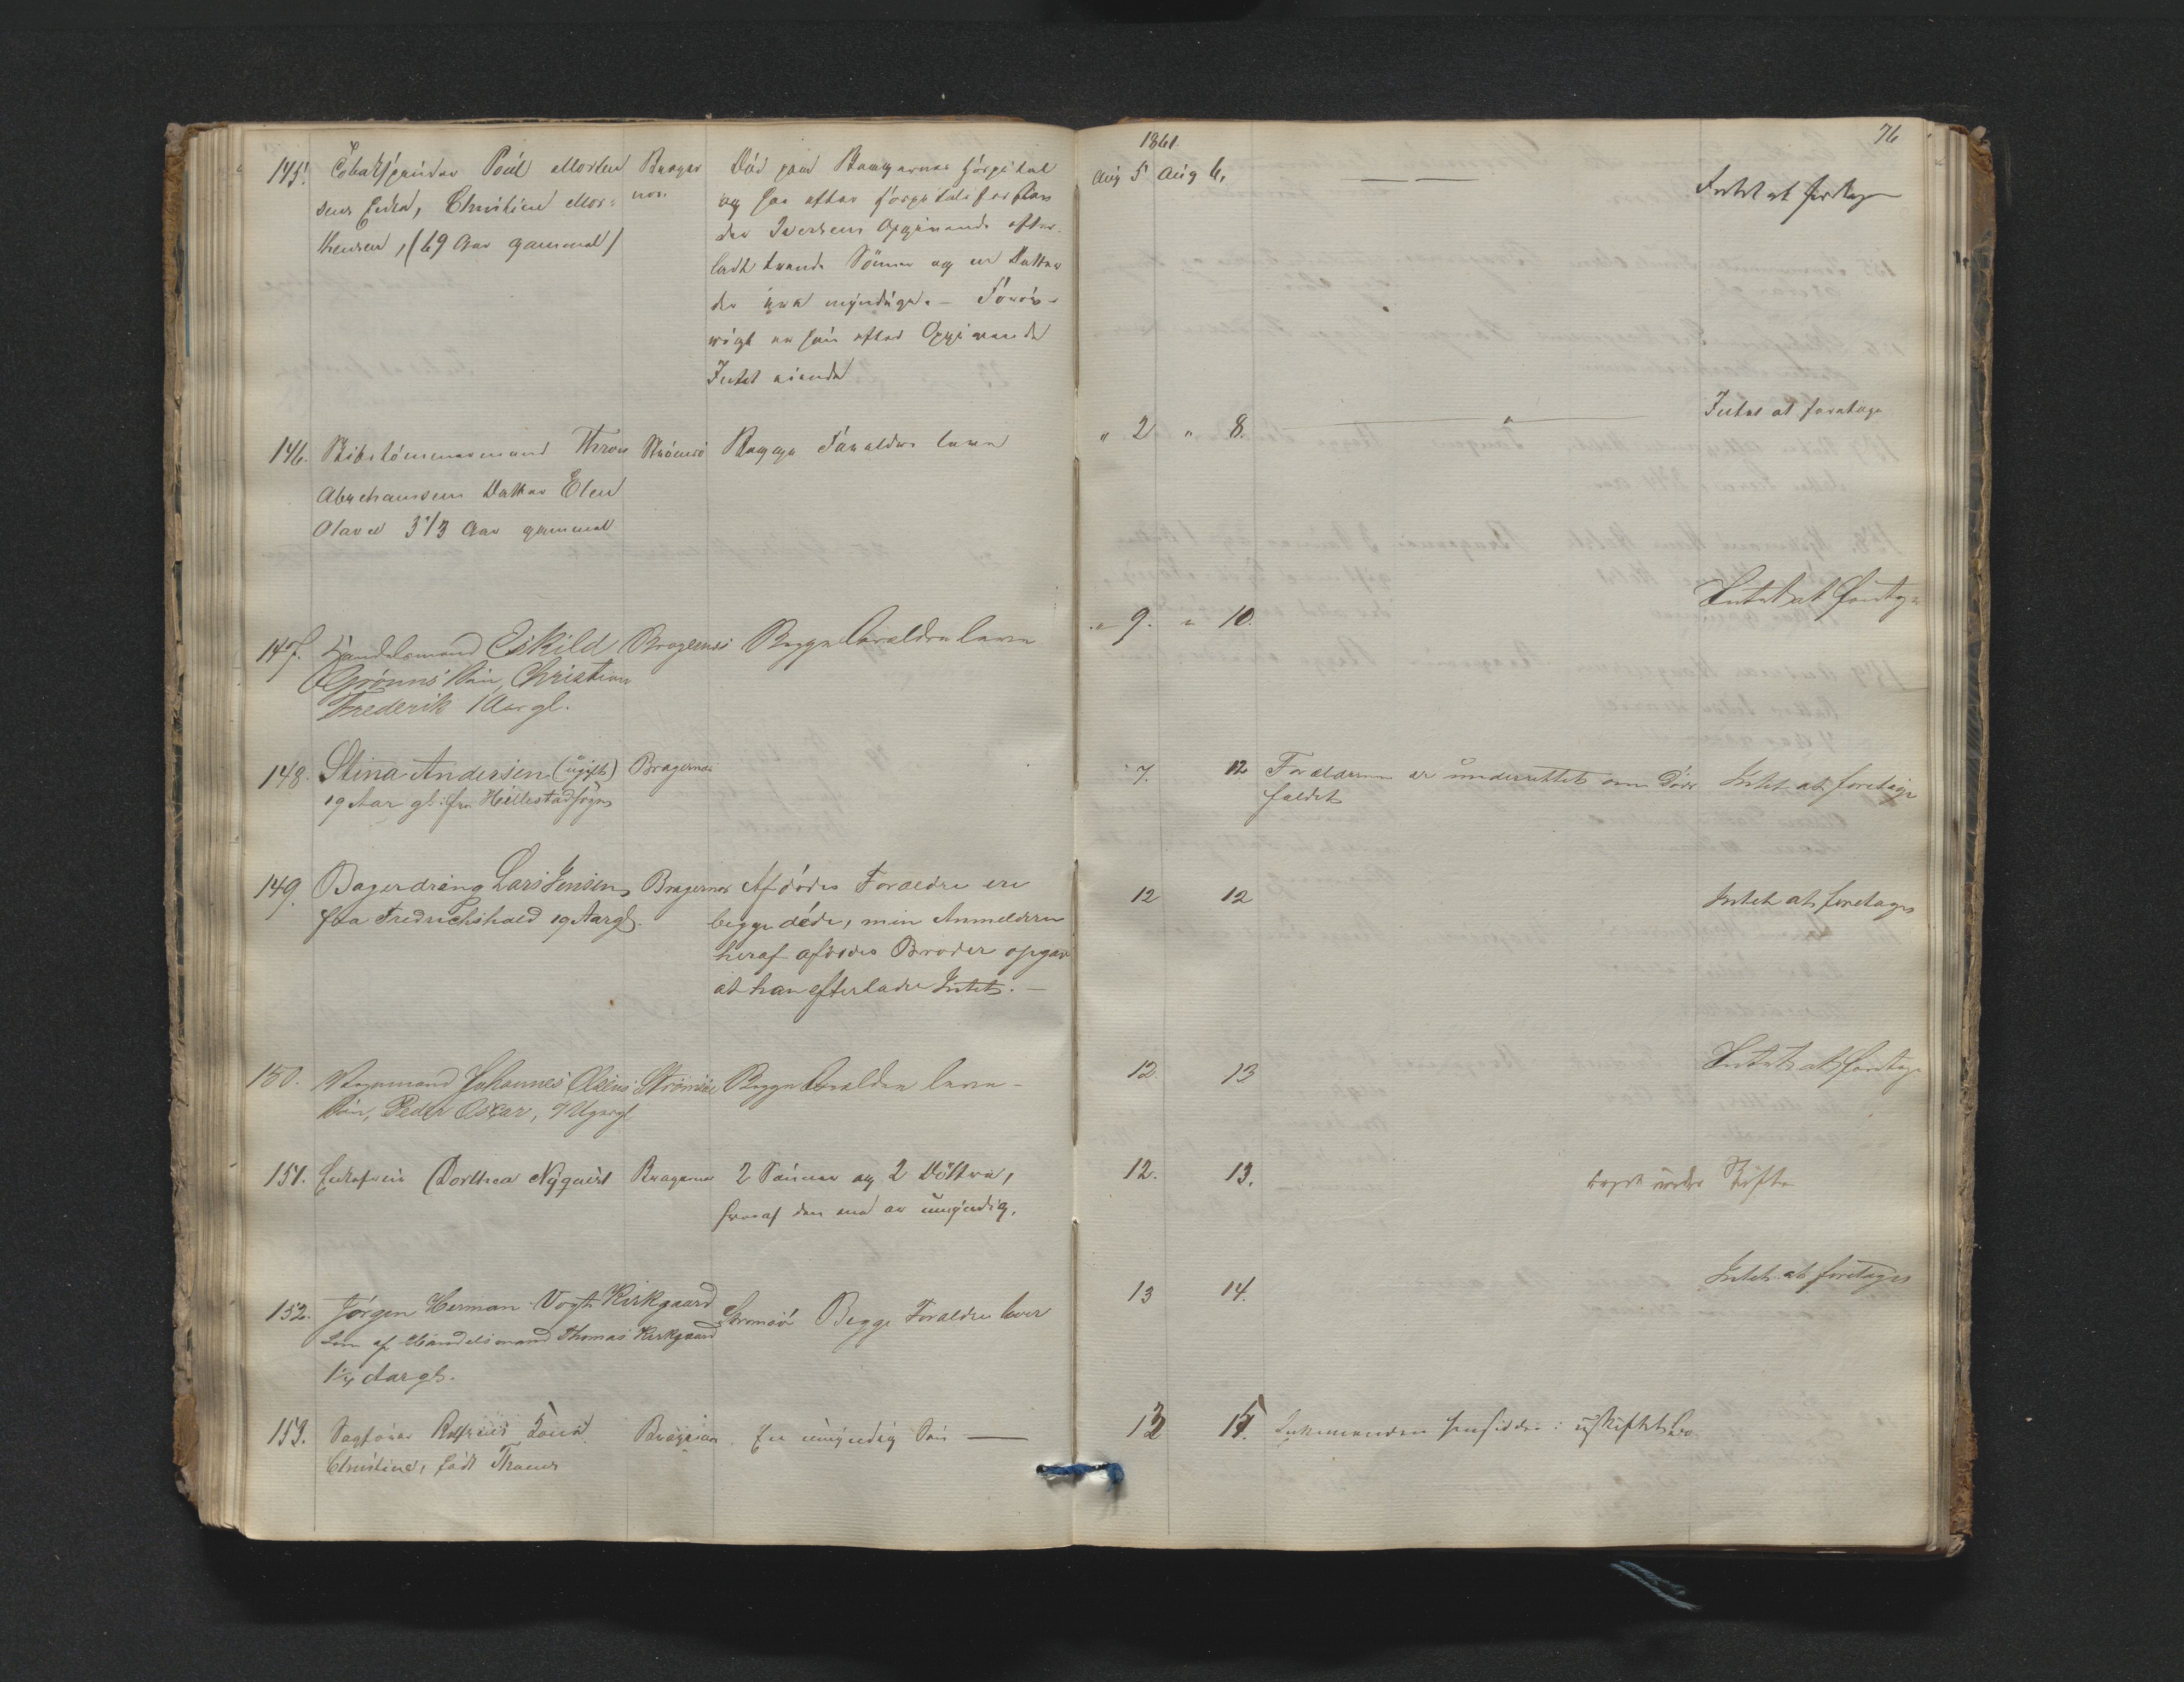 1861
76
145. Tobakspinder Poul Morten
sens Enke, Christine Mor-
thensen, (69 Aar gammel)
Brager
næs
Död paa Bragernes Hospital
og har efter Hospitalsforstan
der Iversens Opgivende efter-
ladt tvende Sönner og en Datter
der ere myndige. – Foröv-
rigt er hun efter Opgivende
Intet eiende
Aug 5 Aug 6.
Intet at foretage
146. Skibstömmermand Thron
Abrahamsens Datter Elen
Olava 3 1/3 Aar gammel
Strömsö
Begge Forældre leve
" 2 " 8.
Intet at foretage
147. Handelsmand Eskild
Grönns Sön, Christian
Frederik 1 Aar gl.
Bragernes
Begge Forældre leve
" 9. " 10.
Intet at foretage
148. Stina Andersen (ugift)
19 Aar gl. fra Hillestad Sogn
Bragernes
7. 12
Forældrene er underrettet om Döds
faldet
Intet at foretage
149. Bagerdreng Lars Jensen
fra Fredrichshald 19 Aar gl.
Bragernes
Afdödes Forældre ere
begge döde, men Anmelderen
heraf afdödes Broder opgav
at han efterlader Intet. –
12 12
Intet at foretages
150. Johannes Olsens
Sön, Peder Oscar, 7 Uger gl.
Strömsöe
Begge Forældre leve –
12. 13
Intet at foretage
151. Enkefrue Dorthea Nyquist
Bragernes
2 Sönner og 2 Döttre,
hvoraf den ene er umyndig.
12. 13.
under Skifte
152. Jörgen Herman Vogt Kirkgaard
Sön af Handelsmand Thomas Kirkgaard
1 1/4 Aar gl.
Strömsö
Begge Forældre lever
13 14.
Intet at foretages
153. Sagförer Kone
Christine, födt
Bragernes
En umyndig Sön
13 15.
Enkemanden hensidder i uskiftet Bo